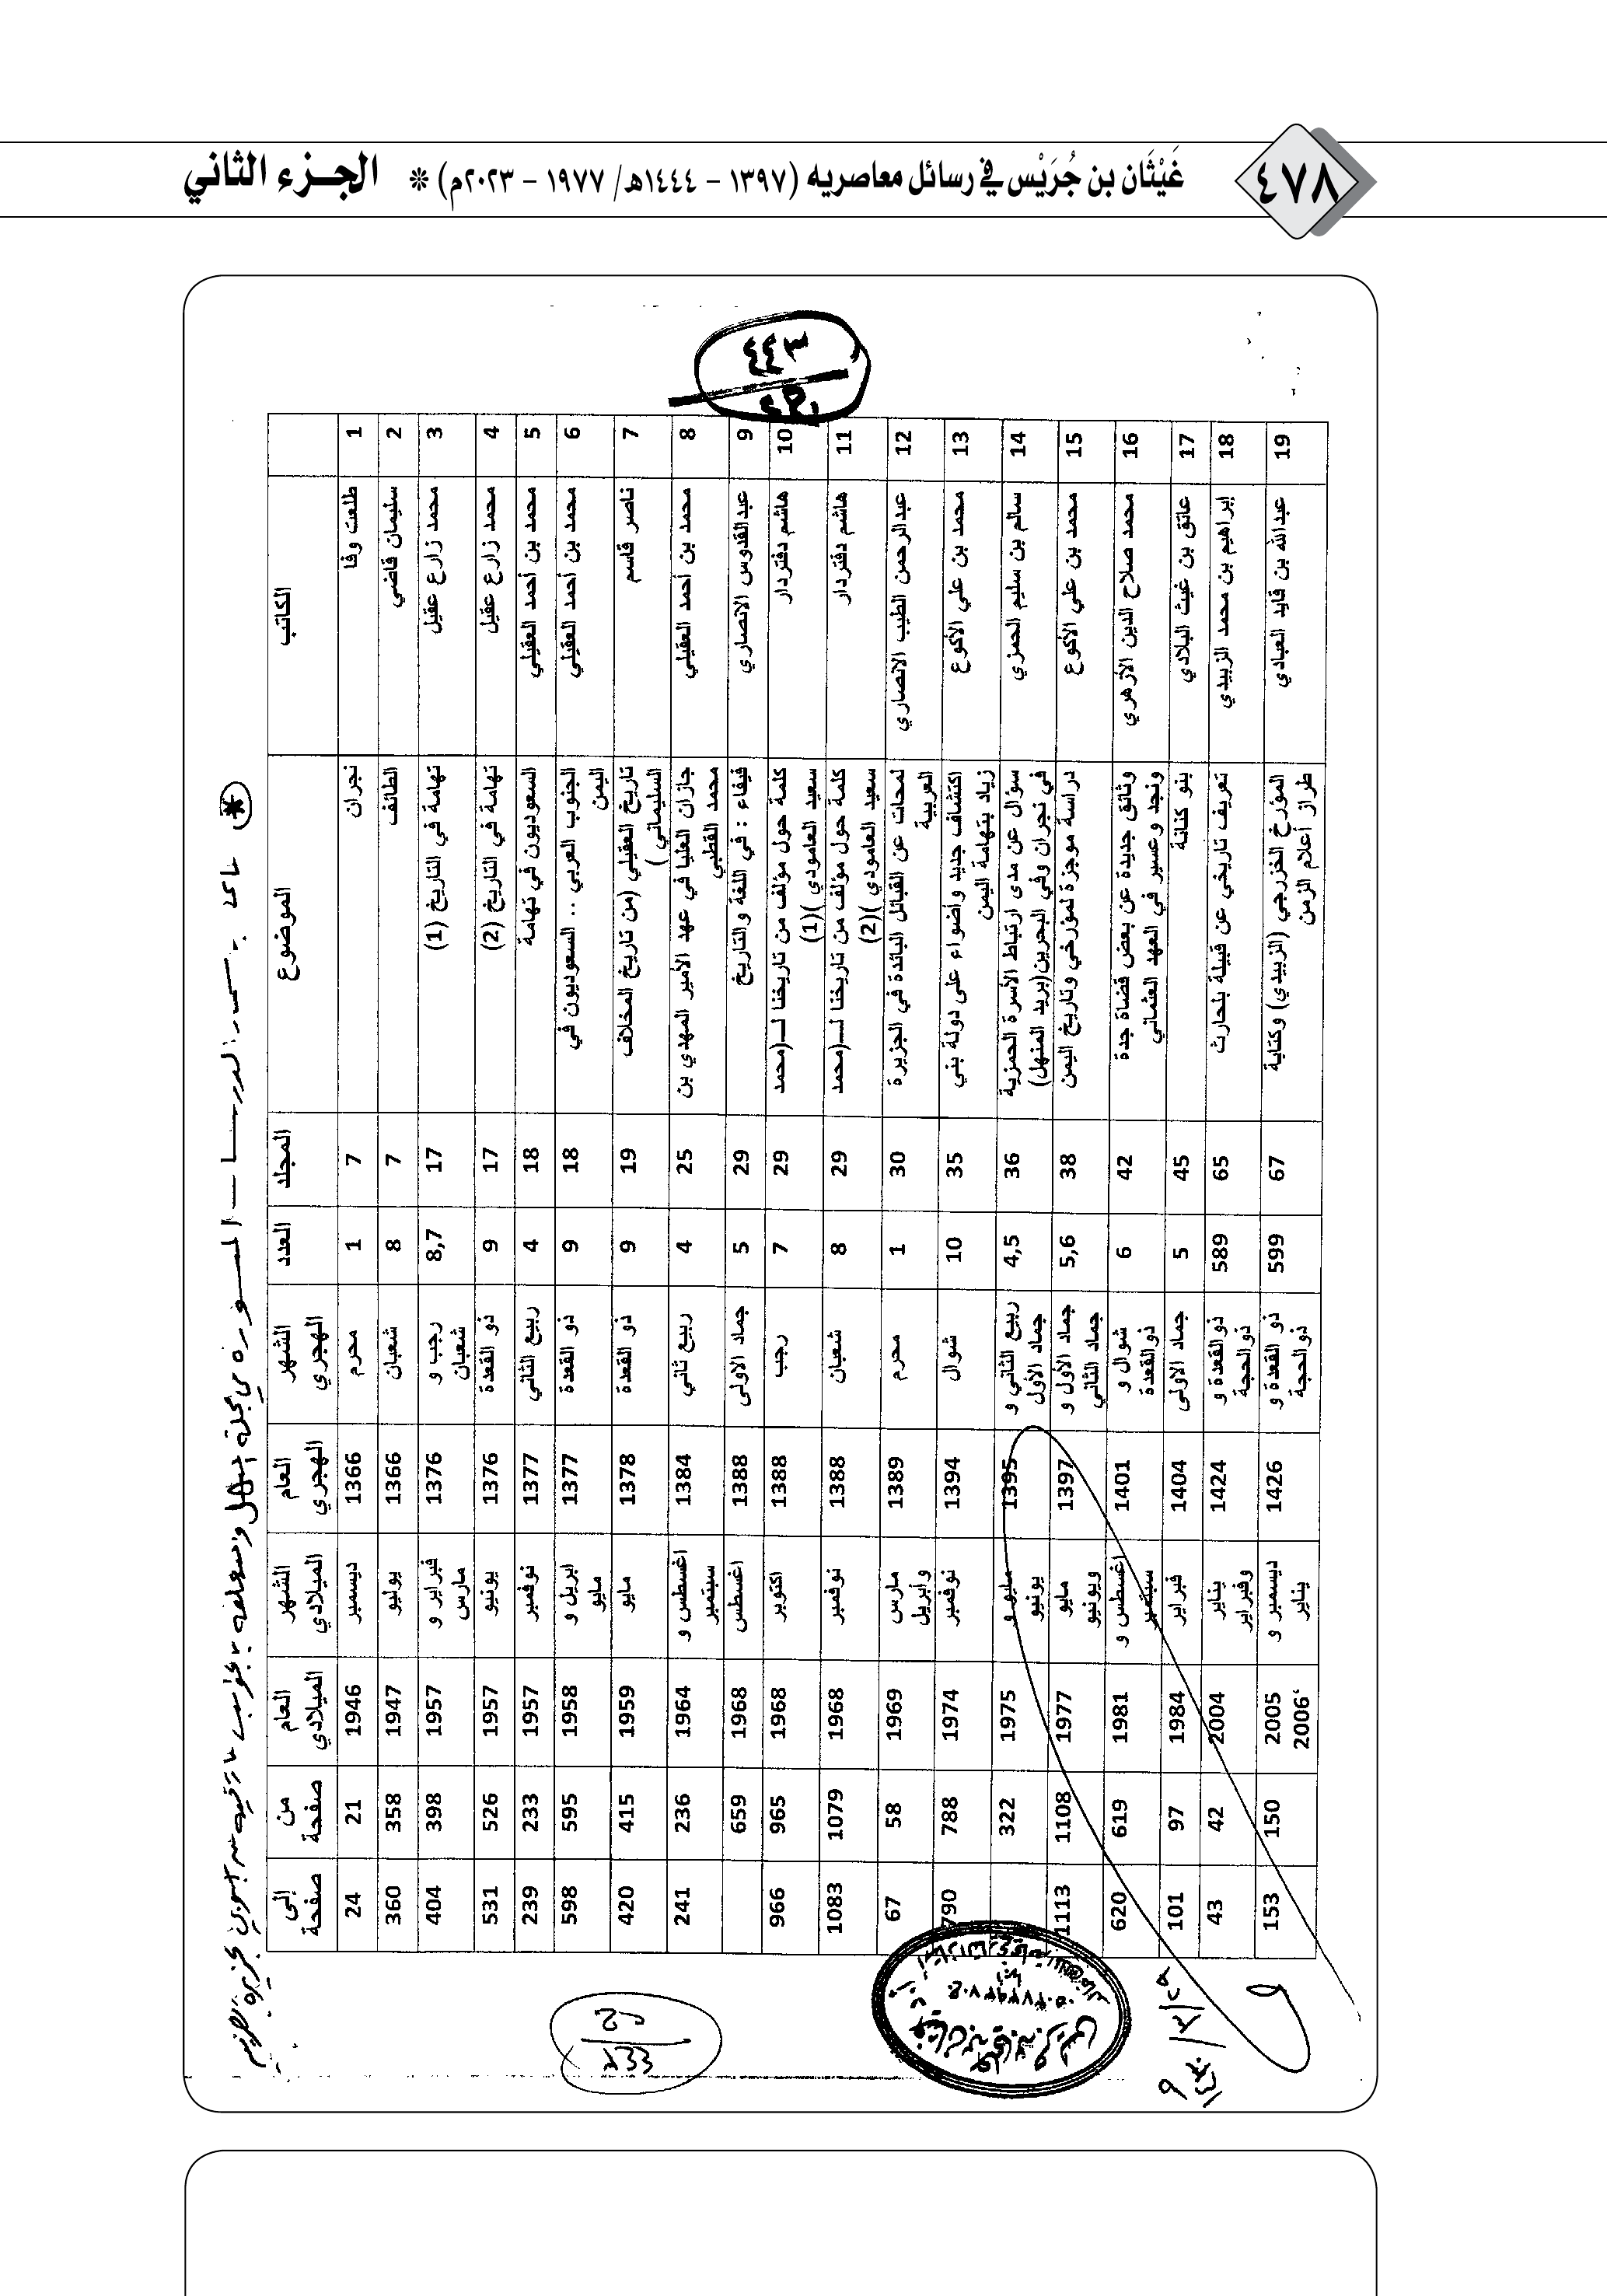 ٤٧٨
غَيْثَان بن جُرَيْس في رسائل معاصريه (١٣٩٧ - ١٤٤٤هـ/ ١٩٧٧ - ٢٠٢٣م) * الجزء الثاني
٤٤٣
الكاتب الموضوع المجلد العدد الشهر الهجري العام الهجري الشهر الميلادي العام الميلادي من صفحة إلى صفحة
1 طلعت وفا نجران 7 1 محرم 1366 ديسمبر 1946 21 24
2 سليمان قاضي الطائف 7 8 شعبان 1366 يوليو 1947 358 360
3 محمد زارع عقيل تهامة في التاريخ (1) 17 8,7 رجب و شعبان 1376 فبراير و مارس 1957 398 404
4 محمد زارع عقيل تهامة في التاريخ (2) 17 9 ذو القعدة 1376 يونيو 1957 526 531
5 محمد بن أحمد العقيلي السعوديون في تهامة 18 4 ربيع الثاني 1377 نوفمبر 1957 233 239
6 محمد بن أحمد العقيلي الجنوب العربي .. السعوديون في اليمن 18 9 ذو القعدة 1377 ابريل و مايو 1958 595 598
7 ناصر قاسم تاريخ العقيلي (من تاريخ المخلاف السليماني) 19 9 ذو القعدة 1378 مايو 1959 415 420
8 محمد بن أحمد العقيلي جازان العليا في عهد الأمير المهدي بن محمد القطبي 25 4 ربيع ثاني 1384 اغسطس و سبتمبر 1964 236 241
9 عبدالقدوس الانصاري فيفاء : في اللغة والتاريخ 29 5 جماد الاولى 1388 اغسطس 1968 659
10 هاشم دفتردار كلمة حول مؤلف من تاريخنا لـ(محمد سعيد العامودي)(1) 29 7 رجب 1388 اكتوبر 1968 965 966
11 هاشم دفتردار كلمة حول مؤلف من تاريخنا لـ(محمد سعيد العامودي)(2) 29 8 شعبان 1388 نوفمبر 1968 1079 1083
12 عبدالرحمن الطيب الانصاري لمحات عن القبائل البائدة في الجزيرة العربية 30 1 محرم 1389 مارس وابريل 1969 58 67
13 محمد بن علي الأكوع اكتشاف جديد وأضواء على دولة بني زياد بتهامة اليمن 35 10 شوال 1394 نوفمبر 1974 788 790
14 سالم بن سليم الحمزي سؤال عن مدى ارتباط الأسرة الحمزية في نجران وفي البحرين(بريد المنهل) 36 4,5 ربيع الثاني و جماد الأول 1395 مايو و يونيو 1975 322
15 محمد بن علي الأكوع دراسة موجزة لمؤرخي وتاريخ اليمن 38 5,6 جماد الأول و جماد الثاني 1397 مايو ويونيو 1977 1108 1113
16 محمد صلاح الدين الأزهري وثائق جديدة عن بعض قضاة جدة ونجد وعسير في العهد العثماني 42 6 شوال و ذوالقعدة 1401 اغسطس و سبتمبر 1981 619 620
17 عاتق بن غيث البلادي بنو كنانة 45 5 جماد الاولى 1404 فبراير 1984 97 101
18 إبراهيم بن محمد الزبيدي تعريف تاريخي عن قبيلة بلحارث 65 589 ذوالقعدة و ذوالحجة 1424 يناير وفبراير 2004 42 43
19 عبدالله بن قايد العبادي المؤرخ الخزرجي (الزبيدي) وكتابة طراز أعلام الزمن 67 599 ذو القعدة و ذوالحجة 1426 ديسمبر و يناير 2005 2006، 150 153